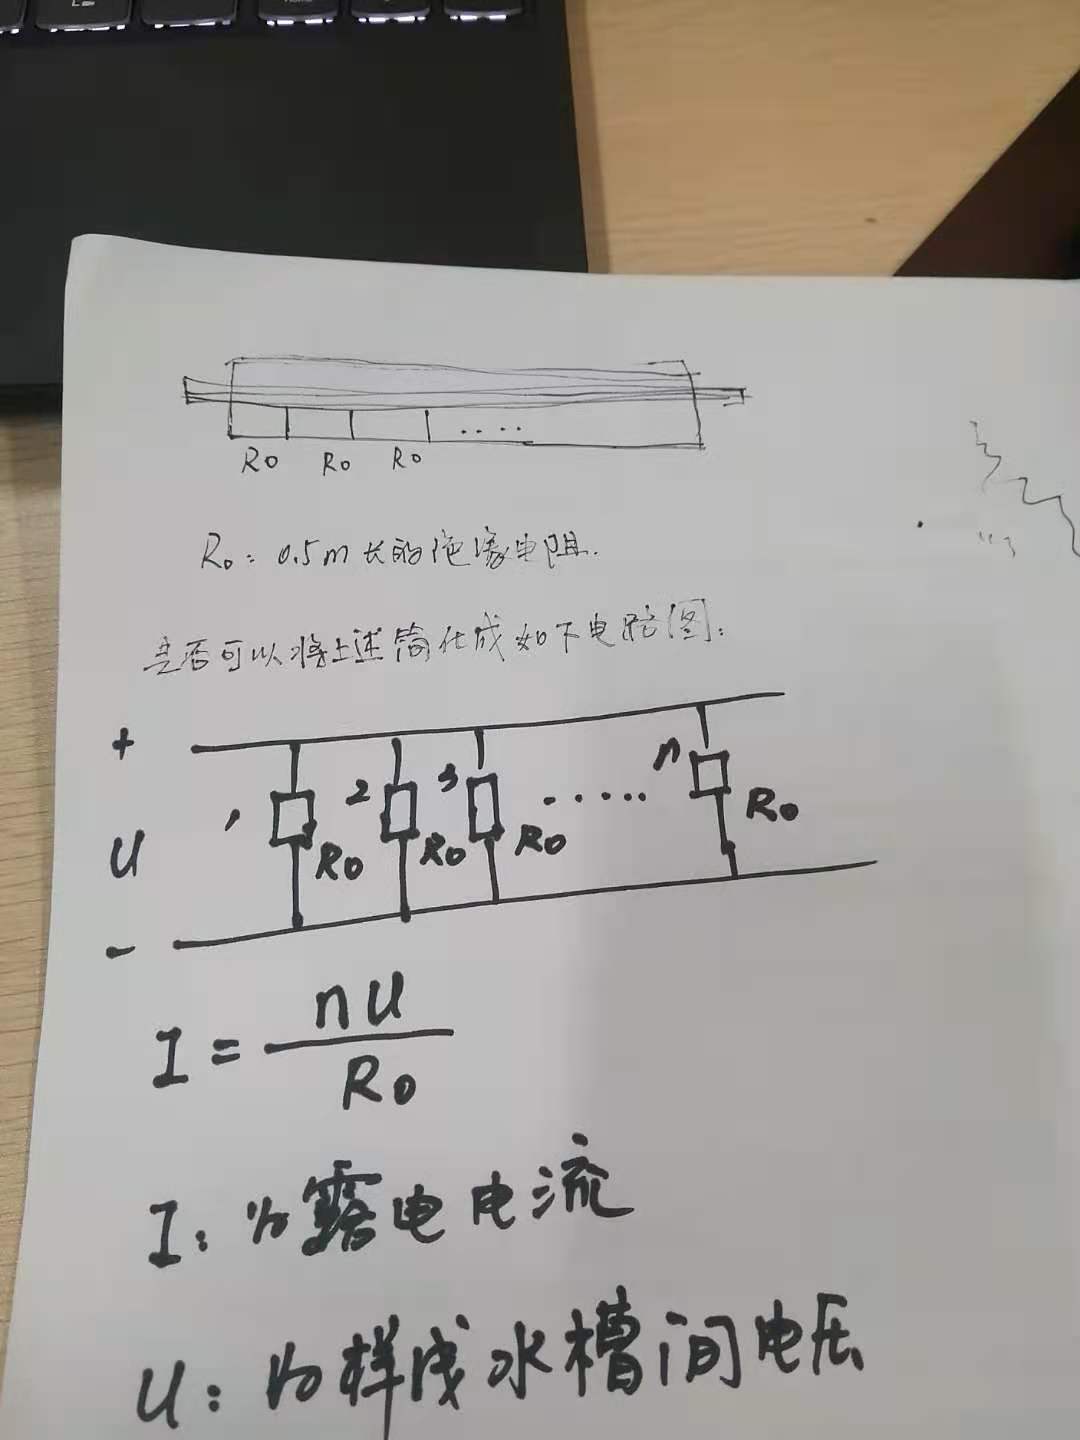 R0 R0 R0 ....
R0: 0.5m长的绝缘电阻.
是否可以将上述简化成如下电路图:
+
U
-
1 R0 2 R0 3 R0 ...... n R0
I = nU / R0
I: 为露电电流
U: 为样线水槽间电压